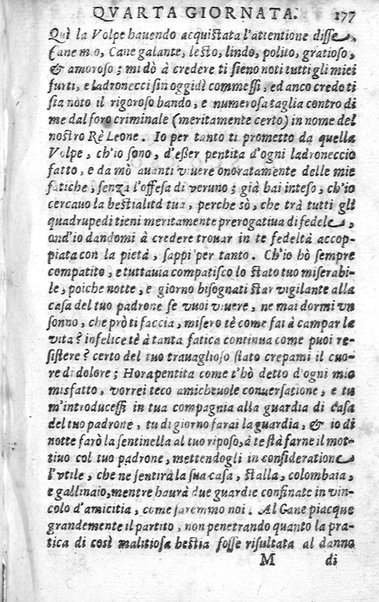 QVARTA GIORNATA. 177
Quì la Volpe hauendo acquistata l'attentione disse,
Cane mio, Cane galante, lesto, lindo, polito, gratioso,
& amoroso; mi dò à credere ti sieno noti tutti gli miei
furti, e ladronecci sin oggidì commessi, ed anco credo ti
sia noto il rigoroso bando, e numerosa taglia contro di
me dal foro criminale (meritamente certo) in nome del
nostro Rè Leone. Io per tanto ti prometto da quella
Volpe, ch'io sono, d'esser pentita d'ogni ladroneccio
fatto, e da mò auanti viuere onoratamente delle mie
fatiche, senza l'offesa di veruno; già bai inteso, ch'io
cercauo la bestialità tua, perche sò, che trà tutti gli
quadrupedi tieni meritamente prerogatiua di fedele,
ond'io dandomi à credere trouar in te fedeltà accop-
piata con la pietà, sappi per tanto. Ch'io hò sempre
compatito, e tuttauia compatisco lo stato tuo miserabi-
le, poiche notte, e giorno bisognati star vigilante alla
casa del tuo padrone se vuoi viuere, ne mai dormi vn
sonno, che prò ti faccia, misero tè come fai à campar la
vita? infelice tè à tanta fatica continua come puoi re-
sistere? certo del tuo trauaglioso stato crepami il cuo-
re di dolore; Hora pentita come t'hò detto d'ogni mio
misfatto, vorrei teco amicheuole conuersatione, e tu
m'introducessi in tua compagnia alla guardia di Casa
del tuo padrone, tu di giorno farai la guardia, & io di
notte farò la sentinella al tuo riposo, à tè sta farne il mot-
tiuo col tuo padrone, mettendogli in consideratione
l'vtile, che ne sentirà la sua casa, stalla, colombaia,
e gallinaio, mentre haurà due guardie confinate in vin-
colo d'amicitia, come faremmo noi. Al Cane piacque
grandemente il partito, non penetrando quanto la pra-
tica di così malitiosa bestia fosse risultata al danno
M di